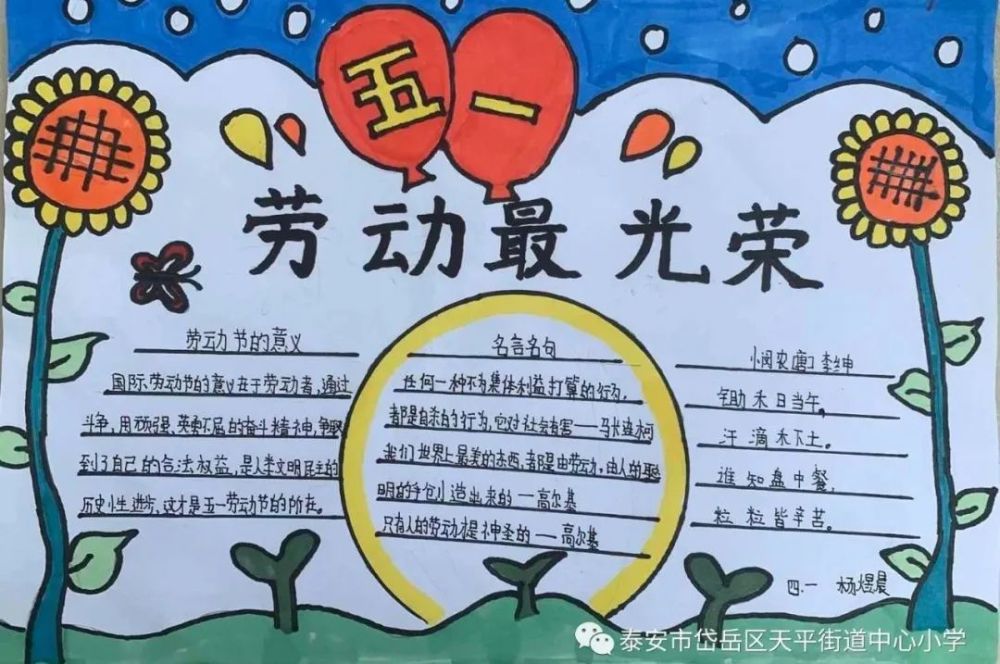 五一
劳动最光荣
劳动节的意义
国际劳动节的意义在于劳动者,通过
斗争,用顽强、英勇不屈的奋斗精神,争取
到了自己的合法权益,是人类文明民主的
历史性进步,这才是五一劳动节的所在。
名言名句
任何一种不为集体利益打算的行为,
都是自杀的行为,它对社会有害——马卡连柯
我们世界上最美的东西,都是由劳动、由人的聪
明的手创造出来的——高尔基
只有人的劳动才是神圣的——高尔基
悯农[唐] 李绅
锄禾日当午,
汗滴禾下土。
谁知盘中餐,
粒粒皆辛苦。
四.一 杨煜晨
泰安市岱岳区天平街道中心小学